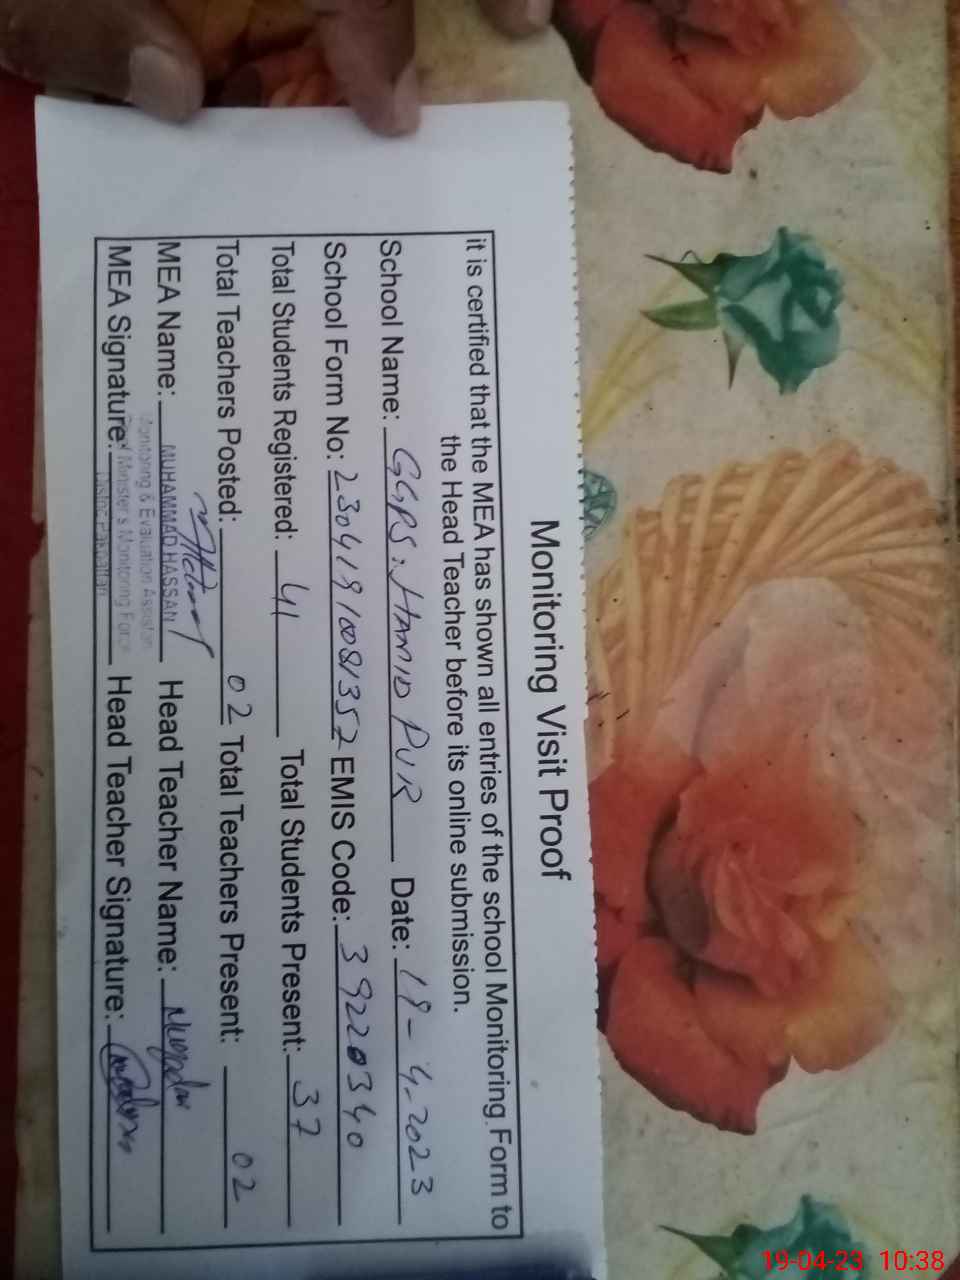 Monitoring Visit Proof
it is certified that the MEA has shown all entries of the school Monitoring Form to
the Head Teacher before its online submission.
School Name: GGPS. HAMID PUR Date: 19-4-2023
School Form No: 23041910081352 EMIS Code: 39220340
Total Students Registered: 41 Total Students Present: 37
Total Teachers Posted: 02 Total Teachers Present: 02
MEA Name: MUHAMMAD HASSAN Head Teacher Name:
Monitoring & Evaluation Assistan
MEA Signature: Minister's Monitoring Force Head Teacher Signature:
District Pakpattan
19-04-23 10:38